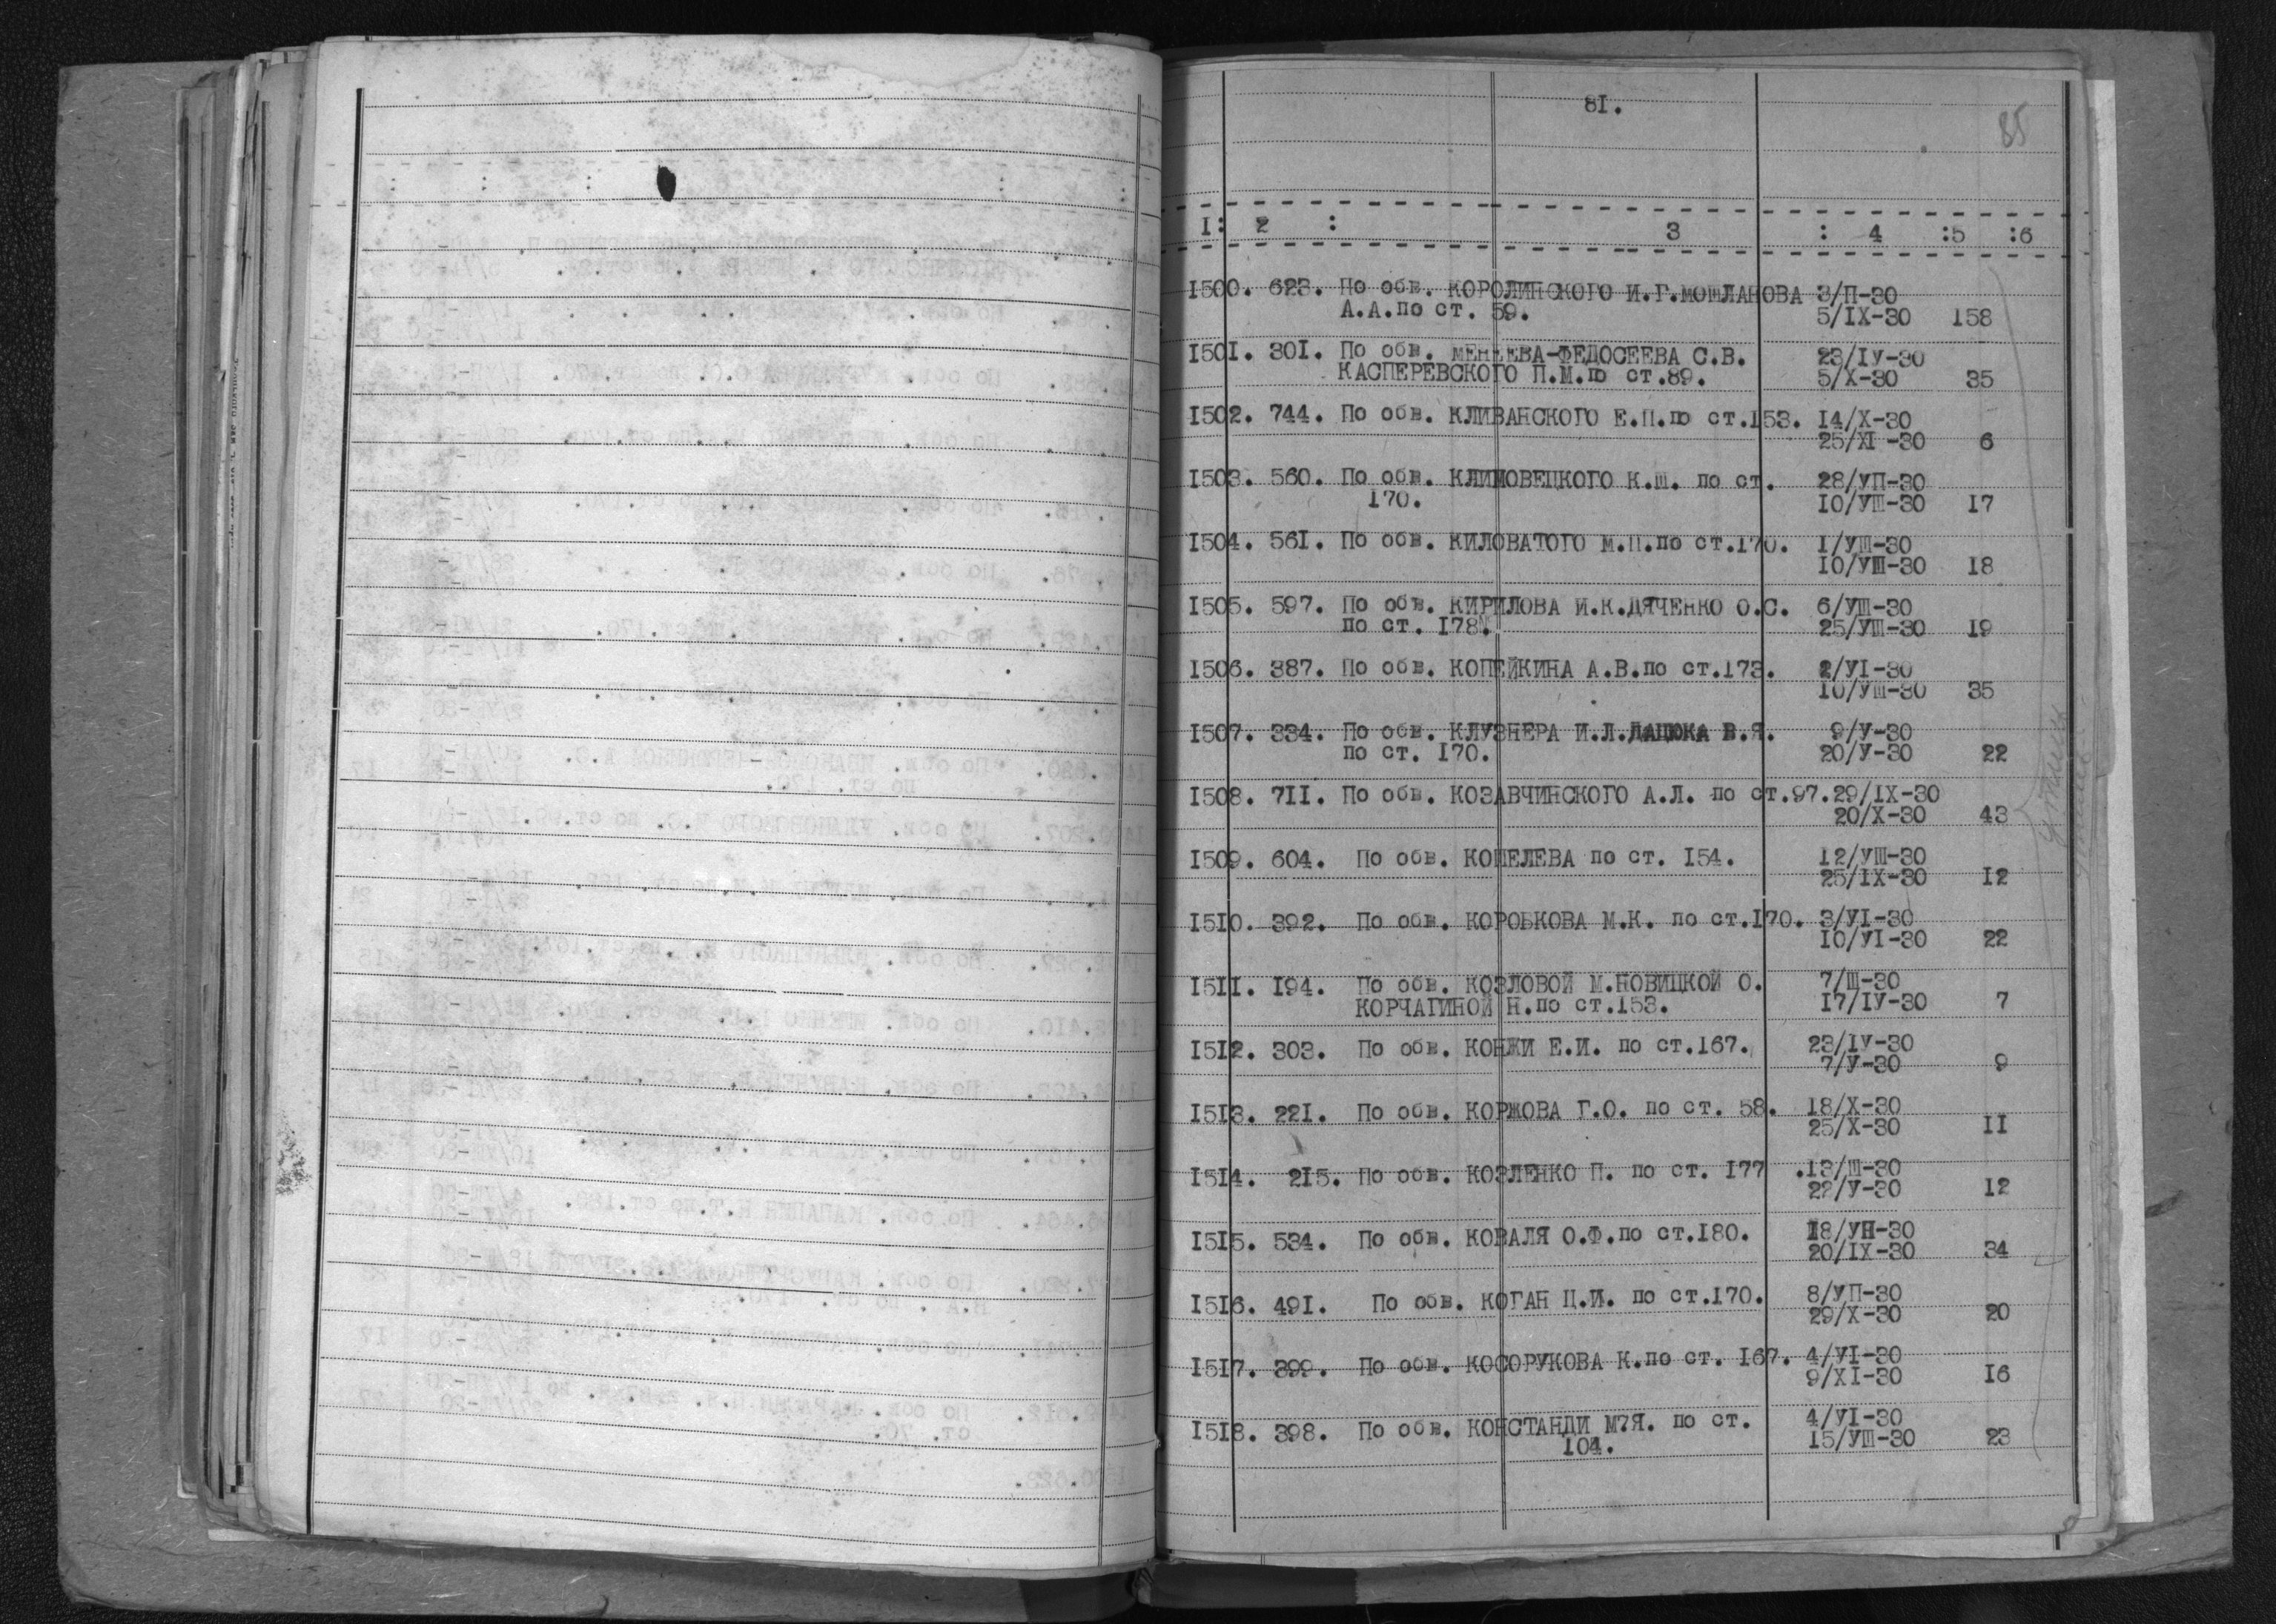 81.
85
I: 2 : 3 : 4 :5 :6
I500. 623. По обв. КОРОЛИНСКОГО И.Г.МОШЛАНОВА 3/П-30
А.А.по ст. 59. 5/IX-30 I58
I50I. 30I. По обв. МЕНЕЕВА-ФЕДОСЕЕВА С.В. 23/IУ-30
КАСПЕРЕВСКОГО П.М.по ст.89. 5/X-30 35
I502. 744. По обв. КЛИВАНСКОГО Е.П.по ст.I53. I4/X-30
25/XI-30 6
I503. 560. По обв. КЛИМОВЕЦКОГО К.Ш. по ст. 28/УП-30
I70. I0/УШ-30 I7
I504. 56I. По обв. КИЛОВАТОГО М.П.по ст.I70. I/УШ-30
I0/УШ-30 I8
I505. 597. По обв. КИРИЛОВА И.К.ДЯЧЕНКО О.С. 6/УШ-30
по ст. I78. 25/УШ-30 I9
I506. 387. По обв. КОПЕЙКИНА А.В.по ст.I73. 2/УI-30
I0/УШ-30 35
I507. 334. По обв. КЛУЗНЕРА И.Л.ДАЦЮКА В.Я. 9/У-30
по ст. I70. 20/У-30 22
I508. 7II. По обв. КОЗАВЧИНСКОГО А.Л. по ст.97. 29/IX-30
20/X-30 43
I509. 604. По обв. КОПЕЛЕВА по ст. I54. I2/УШ-30
25/IX-30 I2
I5I0. 392. По обв. КОРОБКОВА М.К. по ст.I70. 3/УI-30
I0/УI-30 22
I5II. I94. По обв. КОЗЛОВОЙ М.НОВИЦКОЙ О. 7/Ш-30
КОРЧАГИНОЙ Н.по ст.I53. I7/IУ-30 7
I5I2. 303. По обв. КОНЖИ Е.И. по ст.I67. 23/IУ-30
7/У-30 9
I5I3. 22I. По обв. КОРЖОВА Г.О. по ст. 58. I8/X-30
25/X-30 II
I5I4. 2I5. По обв. КОЗЛЕНКО П. по ст. I77 .I3/Ш-30
22/У-30 I2
I5I5. 534. По обв. КОВАЛЯ О.Ф.по ст.I80. I8/УП-30
20/IX-30 34
I5I6. 49I. По обв. КОГАН Ц.И. по ст.I70. 8/УП-30
29/X-30 20
I5I7. 399. По обв. КОСОРУКОВА К.по ст. I67. 4/УI-30
9/XI-30 I6
I5I8. 398. По обв. КОНСТАНДИ М?Я. по ст. 4/УI-30
I04. I5/УШ-30 23